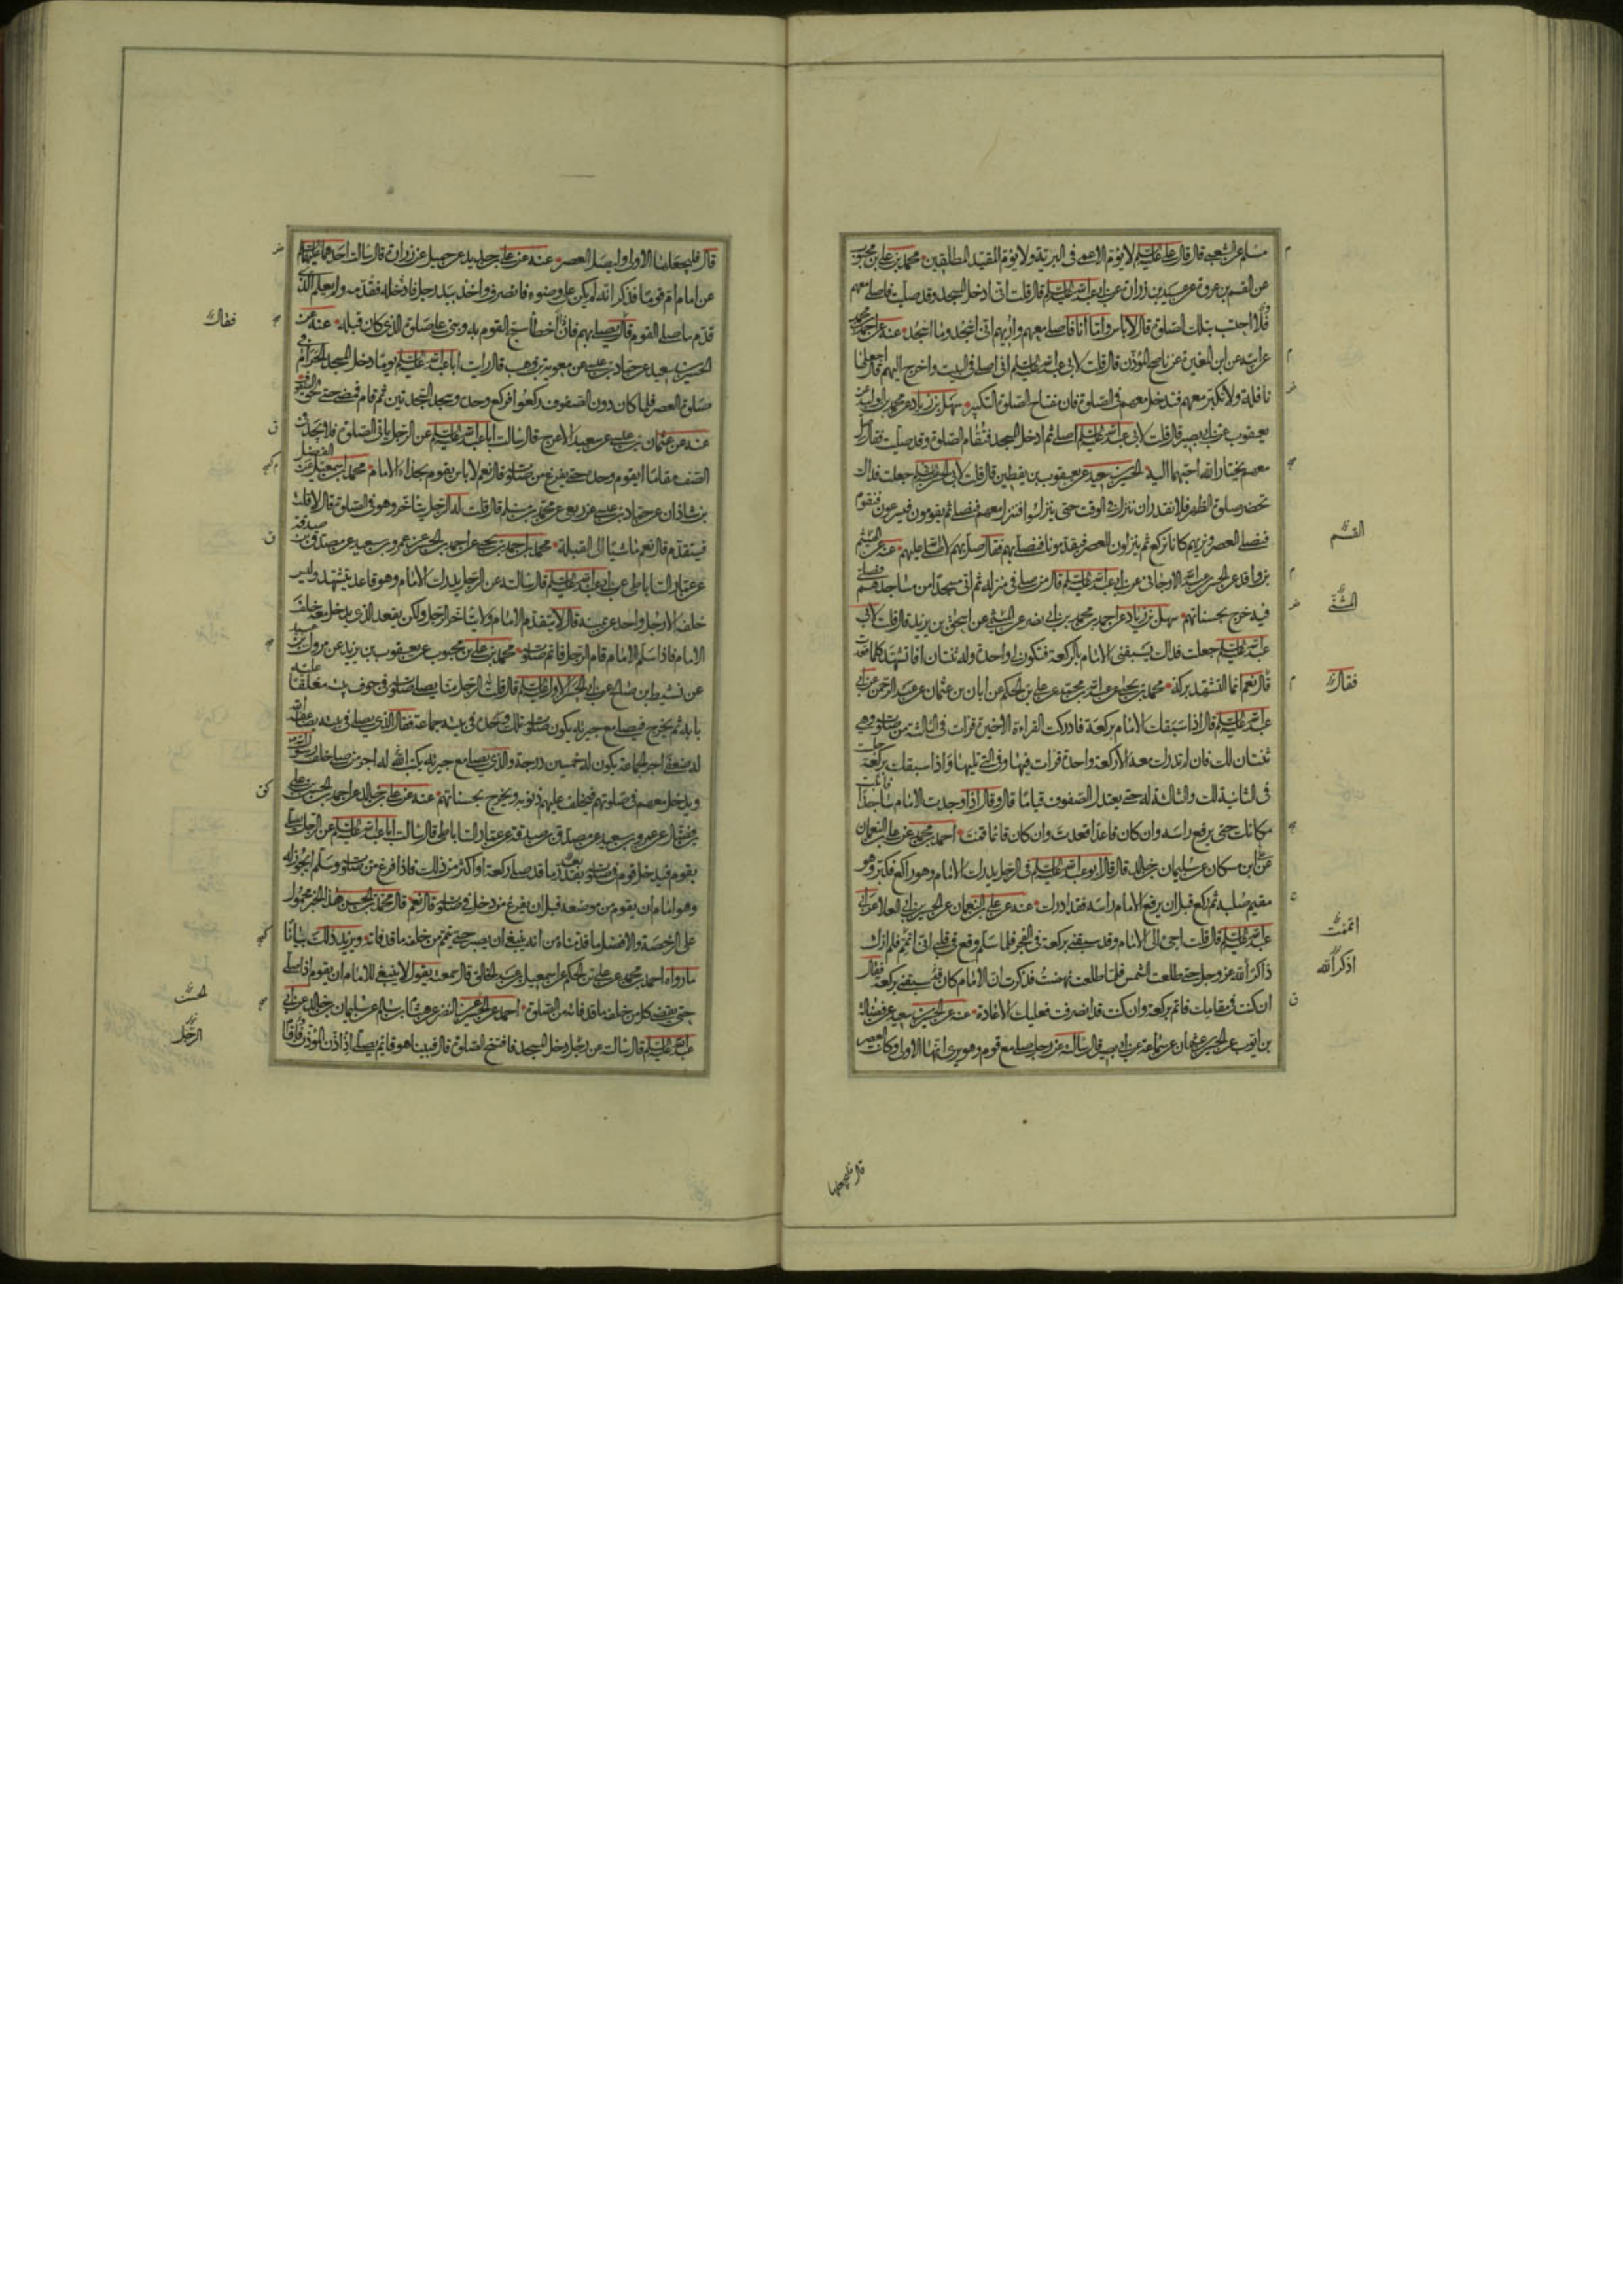 مسلم عن الشعبي قال قال علي عليه السلم لا يؤم الاعمى في البرية ولا يؤم المقيد المطلقين محمد بن علي بن محبوب
عن القسم بن عروة عن عبيد بن زرارة عن ابي عبد الله عليه السلم قال قلت اني ادخل المسجد وقد صليت فاصلي معهم
فلا احتسب بتلك الصلوة قال لا باس واما انا فاصلي معهم واريهم اني اسجد وما اسجد عنه عن احمد بن محمد
عن ابيه عن ابن المغيرة عن ناصح المؤذن قال قلت لابي عبد الله عليه السلم اني اصلي في البيت واخرج اليهم قال اجعلها
نافلة ولا تكبر معهم فتدخل معهم في الصلوة فان مفتاح الصلوة التكبير سهل بن زياد عن محمد بن الوليد عن
يعقوب عن ابي بصير قال قلت لابي عبد الله عليه السلم اصلي ثم ادخل المسجد فتقام الصلوة وقد صليت فقال صل
معهم يختار الله احبهما اليه الحسين بن سعيد عن يعقوب بن يقطين قال قلت لابي الحسن عليه السلم جعلت فداك
تحضر صلوة الظهر فلا نقدر ان ننزل في الوقت حتى ينزلوا فننزل معهم فنصلي ثم يقومون فيسرعون فنقوم
فنصلي العصر ونريهم كانا نركع ثم ينزلون للعصر فيقدمونا فنصلي بهم فقال صل بهم لا صلى الله عليهم عنه عن الهيثم
بن واقد عن الحسين بن عبد الله الارجاني عن ابي عبد الله عليه السلم قال من صلى في منزله ثم اتى مسجدا من مساجدهم فصلى
فيه خرج بحسناتهم سهل بن زياد عن احمد بن محمد بن ابي نصر عن الميثمي عن اسحق بن يزيد قال قلت لابي
عبد الله عليه السلم جعلت فداك يسبقني الامام بالركعة فتكون لي واحدة وله ثنتان افاتشهد كلما قعدت
قال نعم انما التشهد بركة محمد بن يحيى عن عبد الله بن محمد عن علي بن الحكم عن ابان بن عثمان عن عبد الرحمن عن ابي
عبد الله عليه السلم قال اذا سبقك الامام بركعة فادركت القراءة الاخيرة قرات في الثالثة من صلوته وهي
ثنتان لك فان لم تدرك معه الا ركعة واحدة قرات فيها وفي التي تليها واذا سبقك بركعة جلست
في الثانية لك والثالثة له حتى يعتدل الصفوف قياما قال وقال اذا وجدت الامام ساجدا فاثبت
مكانك حتى يرفع راسه وان كان قاعدا قعدت وان كان قائما قمت احمد بن محمد عن علي بن النعمان
عن ابن مسكان عن سليمان بن خالد قال قال ابو عبد الله عليه السلم في الرجل يدرك الامام وهو راكع فكبر وهو
مقيم صلبه ثم ركع قبل ان يرفع الامام راسه فقد ادرك عنه عن علي بن النعمان عن الحسين بن ابي العلا عن ابي
عبد الله عليه السلم قال قلت اجئ الى الامام وقد سبقني بركعة في الفجر فلما سلم وقع في قلبي اني اتم فلم ازل
ذاكرا لله عز وجل حتى طلعت الشمس فلما طلعت نهضت فذكرت ان الامام كان قد سبقني بركعة فقال
ان كنت في مقامك فاتم بركعة وان كنت قد انصرفت فعليك الاعادة عنه عن الحسين بن سعيد عن فضالة
بن ايوب عن الحسين بن عثمان عن سماعة عن ابي بصير قال سالته عن رجل صلى مع قوم وهو يرى انها الاولى وكانت العصر
القسم
فقال
اتممت
اذكر الله
قال فليجعلها
قال فليجعلها الاولى وليصل العصر عنه عن علي بن حديد عن جميل عن زرارة قال سالت احدهما عليهما السلم
عن امام ام قوما فذكر انه لم يكن على وضوء فانصرف واخذ بيد رجل فادخله فقدمه ولم يعلم الذي
قدم ما صلى القوم قال يصلي بهم فان اخطا سبح القوم به وبنى على صلوة الذي كان قبله عنه عن
الحسين بن سعيد عن حماد بن عيسى عن معوية بن وهب قال رايت ابا عبد الله عليه السلم يوما دخل المسجد الحرام في
صلوة العصر فلما كان دون الصفوف ركعوا فركع وحده وسجد السجدتين ثم قام فمضى حتى لحق الصفوف
عنه عن عثمان بن عيسى عن سعيد الاعرج قال سالت ابا عبد الله عليه السلم عن الرجل ياتي الصلوة فلا يجد في
الصف مقاما ايقوم وحده حتى يفرغ من صلوته قال نعم لا باس يقوم بحذاء الامام محمد بن اسمعيل عن الفضل
بن شاذان عن حماد بن عيسى عن ربعي عن محمد بن مسلم قال قلت له الرجل يتاخر وهو في الصلوة قال لا قلت
فيتقدم قال نعم ماشيا الى القبلة محمد بن احمد بن يحيى عن احمد بن الحسن عن عمرو بن سعيد عن مصدق بن صدقة
عن عمار الساباطي عن ابي عبد الله عليه السلم قال سالته عن الرجل يدرك الامام وهو قاعد يتشهد وليس
خلفه الا رجل واحد عن يمينه قال لا يتقدم الامام ولا يتاخر الرجل ولكن يقعد الذي يدخل معه خلف
الامام فاذا سلم الامام قام الرجل فاتم صلوته محمد بن علي بن محبوب عن يعقوب بن يزيد عن مروك بن عبيد
عن نشيط بن صالح عن ابي الحسن الاول عليه السلم قال قلت له الرجل منا يصلي صلوته في جوف بيته مغلقا عليه
بابه ثم يخرج فيصلي مع جيرته يكون صلوته تلك وحده في بيته جماعة فقال الذي يصلي في بيته يضاعفه الله
له ضعفي اجر الجماعة يكون له خمسين درجة والذي يصلي مع جيرته يكتب الله له اجر من صلى خلف رسول الله
ويدخل معهم في صلوتهم فيخلف عليهم ذنوبه ويخرج بحسناتهم عنه عن علي بن خالد عن احمد بن الحسن بن علي
بن فضال عن عمرو بن سعيد عن مصدق بن صدقة عن عمار الساباطي قال سالت ابا عبد الله عليه السلم عن الرجل يصلي
بقوم فيدخل قوم في صلوته بقدر ما قد صلى ركعة او اكثر من ذلك فاذا فرغ من صلوته وسلم ايجوز له
وهو امام ان يقوم من موضعه قبل ان يفرغ من دخل في صلوته قال نعم قال محمد بن الحسن هذا الخبر محمول
على الرخصة والافضل ما قدمناه من انه ينبغي ان يصبر حتى يتم من خلفه ما قد فاته ويزيد ذلك بيانا
ما رواه احمد بن محمد عن علي بن الحكم عن اسمعيل بن عبد الخالق قال سمعته يقول لا ينبغي للامام ان يقوم اذا صلى
حتى يقضي كل من خلفه ما قد فاته من الصلوة احمد عن الحسين عن النضر عن هشام بن سالم عن سليمان بن خالد عن ابي
عبد الله عليه السلم قال سالته عن رجل دخل المسجد فافتتح الصلوة قال فبينا هو قائم يصلي اذ اذن المؤذن فاقام
فقال
الحسن
الرجل